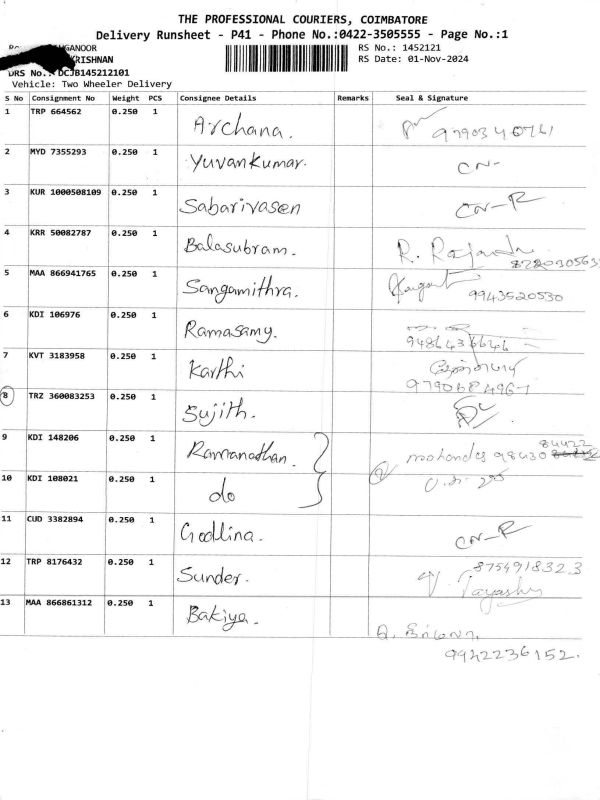 THE PROFESSIONAL COURIERS, COIMBATORE
Delivery Runsheet - P41 - Phone No.:0422-3505555 - Page No.:1
GANOOR
KRISHNAN
DRS No.: DCJB145212101
Vehicle: Two Wheeler Delivery
RS No.: 1452121
RS Date: 01-Nov-2024
S No Consignment No Weight PCS Consignee Details Remarks Seal & Signature
1 TRP 664562 0.250 1 Archana.
2 MYD 7355293 0.250 1 Yuvankumar. CN-
3 KUR 1000508109 0.250 1 Sabarivasen CN-R
4 KRR 50082787 0.250 1 Balasubram. R.
5 MAA 866941765 0.250 1 Sangamithra. 9943520530
6 KDI 106976 0.250 1 Ramasamy. 9486436646
7 KVT 3183958 0.250 1 Karthi
9790684967
8 TRZ 360083253 0.250 1 Sujith.
9 KDI 148206 0.250 1 Ramanathan. 98430 84422
10 KDI 108021 0.250 1 do
11 CUD 3382894 0.250 1 Godlina. CN-R
12 TRP 8176432 0.250 1 Sunder. 8754918323
13 MAA 866861312 0.250 1 Bakiya.
9942236152.